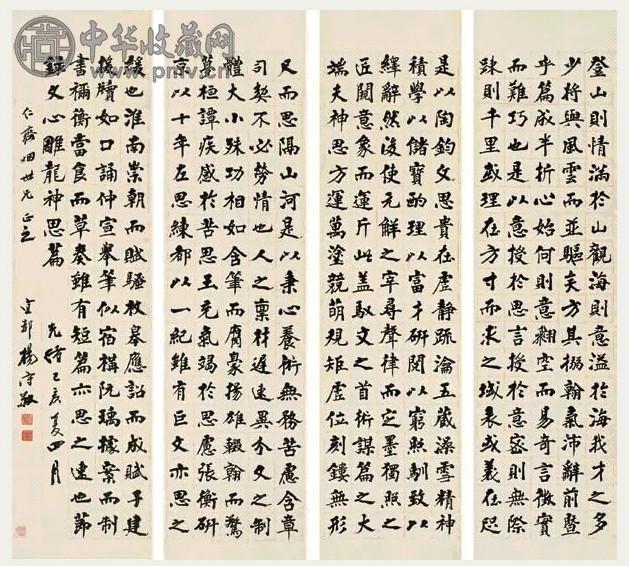 中华收藏网
www.pmw.com
登山則情滿於山觀海則意溢於海我才之多
少將與風雲而並驅矣方其搦翰氣沛辭前暨
乎篇成半折心始何則意翻空而易奇言徵實
而難巧也是以意授於思言授於意密則無際
疎則千里或理在方寸而求之域表或義在咫
是以陶鈞文思貴在虛靜疏瀹五藏澡雪精神
積學以儲寶酌理以富才研閱以窮照馴致以
繹辭然後使元解之宰尋聲律而定墨獨照之
匠闚意象而運斤此蓋馭文之首術謀篇之大
端夫神思方運萬塗競萌規矩虛位刻鏤無形
尺而思隔山河是以秉心養術無務苦慮含章
司契不必勞情也人之稟材遲速異分文之制
體大小殊功相如含筆而腐豪揚雄輟翰而驚
夢桓譚疾感於苦思王充氣竭於思慮張衡研
京以十年左思練都以一紀雖有巨文亦思之
緩也淮南崇朝而賦騷枚皋應詔而成賦子建
援牘如口誦仲宣舉筆似宿構阮瑀據案而制
書禰衡當食而草奏雖有短篇亦思之速也節
錄文心雕龍神思篇
光緒己亥夏四月
仁齋姻世兄正之
宜都楊守敬